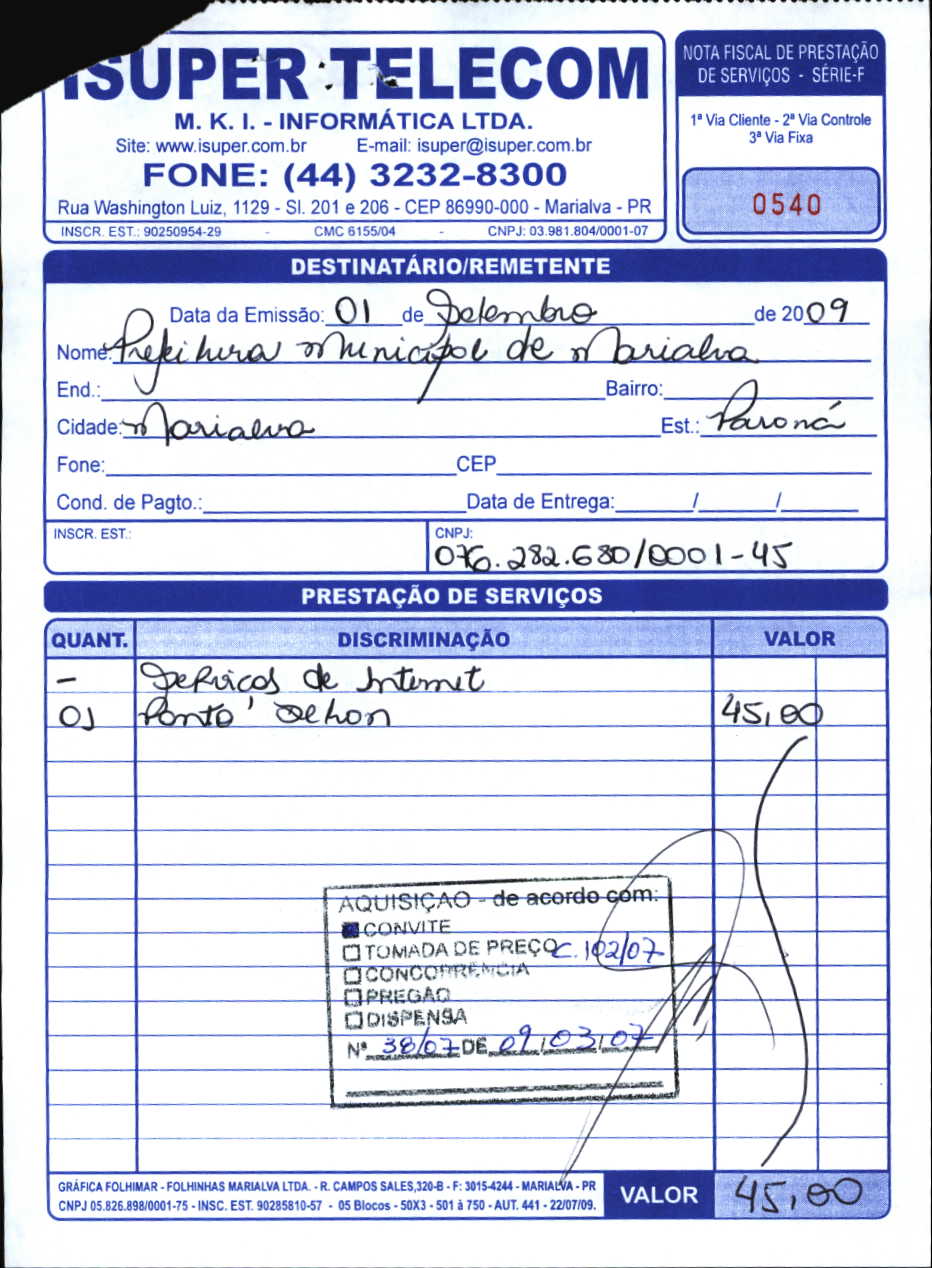 ISUPER TELECOM
M. K. I. - INFORMÁTICA LTDA.
Site: www.isuper.com.br E-mail: isuper@isuper.com.br
FONE: (44) 3232-8300
Rua Washington Luiz, 1129 - Sl. 201 e 206 - CEP 86990-000 - Marialva - PR
INSCR. EST.: 90250954-29 - CMC 6155/04 - CNPJ: 03.981.804/0001-07
NOTA FISCAL DE PRESTAÇÃO
DE SERVIÇOS - SÉRIE-F
1ª Via Cliente - 2ª Via Controle
3ª Via Fixa
0540
DESTINATÁRIO/REMETENTE
Data da Emissão: 01 de Setembro de 2009
Nome: Prefeitura Municipal de Marialva
End.: Bairro:
Cidade: Marialva Est.: Paraná
Fone: CEP
Cond. de Pagto.: Data de Entrega: / /
INSCR. EST.: CNPJ:
076.282.680/0001-45
PRESTAÇÃO DE SERVIÇOS
QUANT. DISCRIMINAÇÃO VALOR
- Serviços de Internet
01 Ponto 45,00
AQUISIÇÃO - de acordo com:
CONVITE
TOMADA DE PREÇO C. 102/07
CONCORRÊNCIA
PREGÃO
DISPENSA
Nº 38/07 DE 09/03/07
GRÁFICA FOLHIMAR - FOLHINHAS MARIALVA LTDA. - R. CAMPOS SALES,320-B - F: 3015-4244 - MARIALVA - PR
CNPJ 05.826.898/0001-75 - INSC. EST. 90285810-57 - 05 Blocos - 50X3 - 501 à 750 - AUT. 441 - 22/07/09.
VALOR 45,00